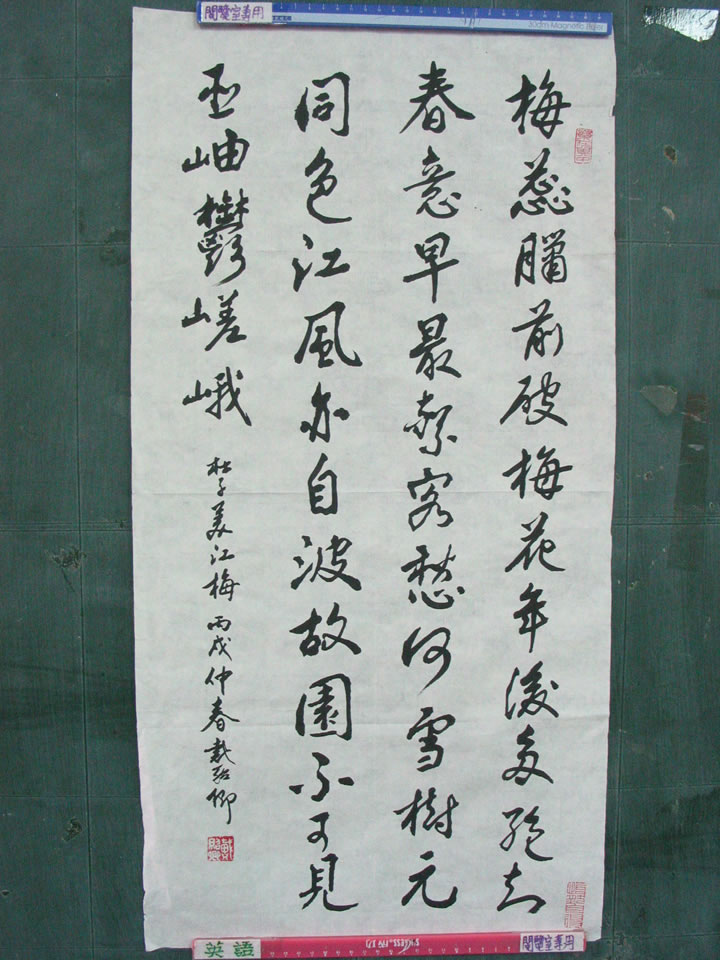 閱覽室專用
梅蕊臘前破梅花年後多絕知
春意早最奈客愁何雪樹元
同色江風亦自波故園不可見
巫岫鬱嵯峨
杜子美江梅 丙戌仲春戴
英語
閱覽室專用